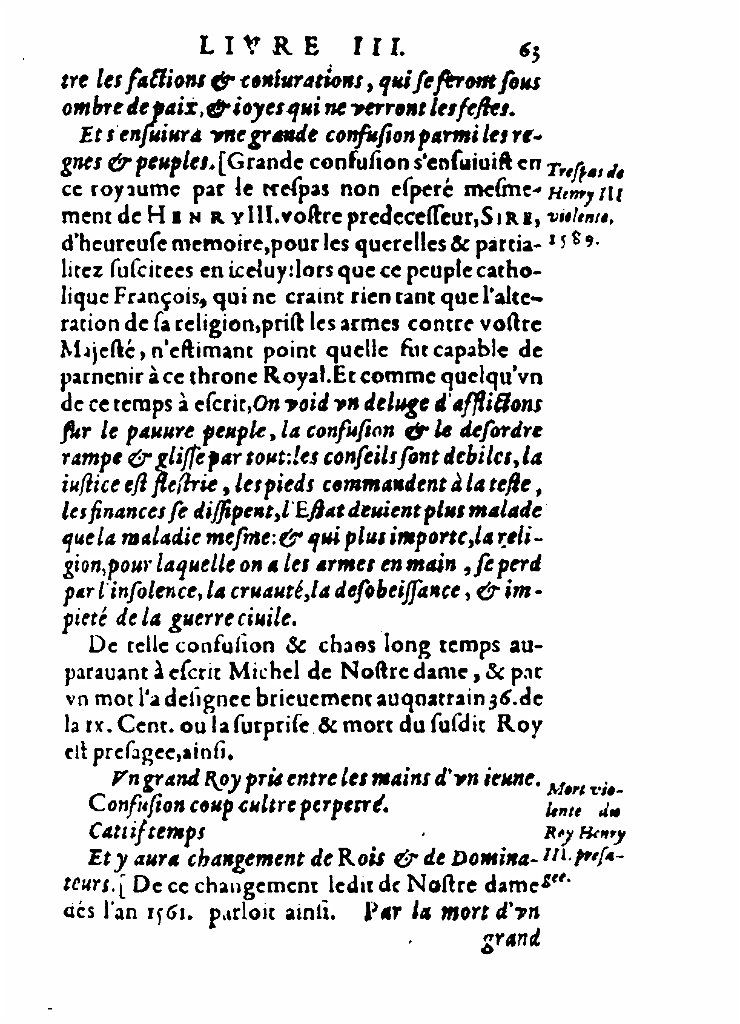 LIVRE III. 63
tre les factions & coniurations, qui se feront sous
ombre de paix, & ioyes qui ne verront les festes.
Et s'ensuiura vne grande confusion parmi les re-
gnes & peuples. [Grande confusion s'ensuiuist en
ce royaume par le trespas non esperé mesme-
ment de HENRY III. vostre predecesseur, SIRE,
d'heureuse memoire, pour les querelles & partia-
litez suscitees en iceluy: lors que ce peuple catho-
lique François, qui ne craint rien tant que l'alte-
ration de sa religion, prist les armes contre vostre
Majesté, n'estimant point quelle fut capable de
parnenir à ce throne Royal. Et comme quelqu'vn
de ce temps à escrit, On void vn deluge d'afflictions
sur le pauure peuple, la confusion & le desordre
rampe & glisse par tout: les conseils sont debiles, la
iustice est flestrie, les pieds commandent à la teste,
les finances se dissipent, l'Estat deuient plus malade
que la maladie mesme: & qui plus importe, la reli-
gion, pour laquelle on a les armes en main, se perd
par l'insolence, la cruauté, la desobeissance, & im-
pieté de la guerre ciuile.
De telle confusion & chaos long temps au-
parauant à escrit Michel de Nostre dame, & par
vn mot l'a designee brieuement au quatrain 36. de
la IX. Cent. ou la surprise & mort du susdit Roy
est presagee, ainsi.
Vn grand Roy pris entre les mains d'vn ieune.
Confusion coup cultre perpetré.
Cattif temps
Et y aura changement de Rois & de Domina-
teurs. [De ce changement ledit de Nostre dame
dés l'an 1561. parloit ainsi. Par la mort d'vn
grand
Trespas de
Henry III
violente,
1589.
Mort vio-
lente du
Roy Henry
III. presa-
gee.